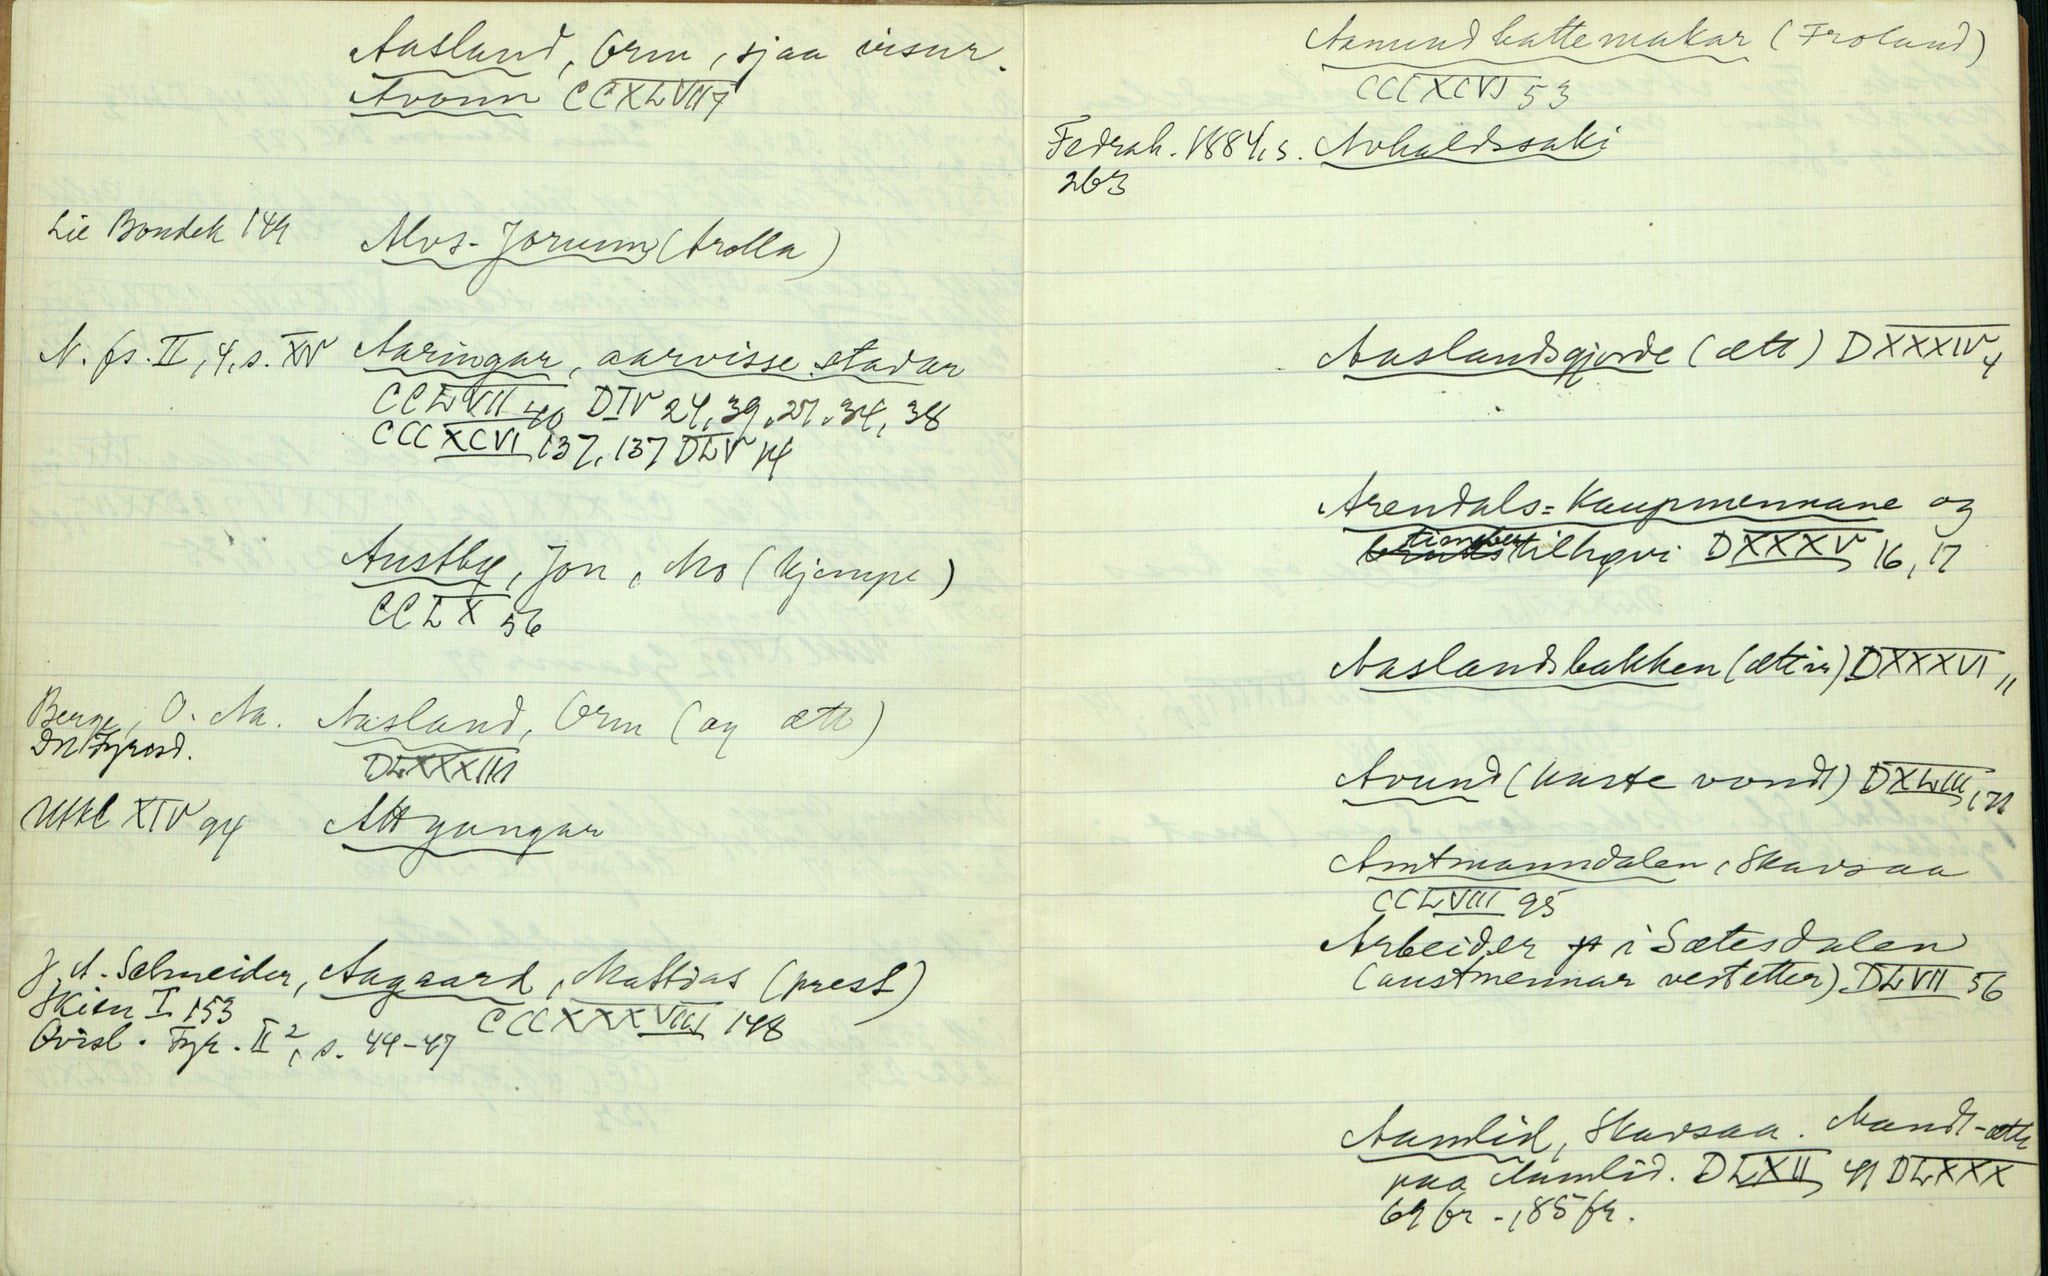 Aasland, Orm, sjaa visur.
Avonn CCXLVII 7
Lie Bondek 149 Alvs-Jorunn (trolla)
N. fs. II, 4, s. XV Aaringar, aarvisse stadar
CCLVII 40 DIV 24, 39, 27, 34, 38
CCCXCVI 137, 137 DLV 14
Austby, Jon, Mo (kjempe)
CCLX 56
Berge, O. Aa. Aasland, Orm (og ætt)
Dri Fyresd. DLXXXIII
Utkl XIV 94 Attgangar
J. A. Schneider, Aagaard, Mattias (prest)
Skien I 153 CCCXXXVIII 148
Qvisl. Fyr. II², s. 44-47
Aamund hattemakar (Froland)
CCCXCVI 53
Fedrah. 1884, s. Avhaldssaki
263
Aaslandsgjorde (ætt) DXXXIV 4
Arendals-Kaupmennane og
timber tilhøvi DXXXV 16, 17
Aaslandsbakken (ættir) DXXXVI 11
Avund (kaste vondt) DXLIII, 71
Amtmanndalen, Skavsaa
CCLVIII 95
Arbeider i Sætesdalen
(austmennar vestetter) DLVII 56
Aamlid, Skavsaa. Mandt-ætt
paa Aamlid. DLXII 41 DLXXX
69 fr-, 85 fr.